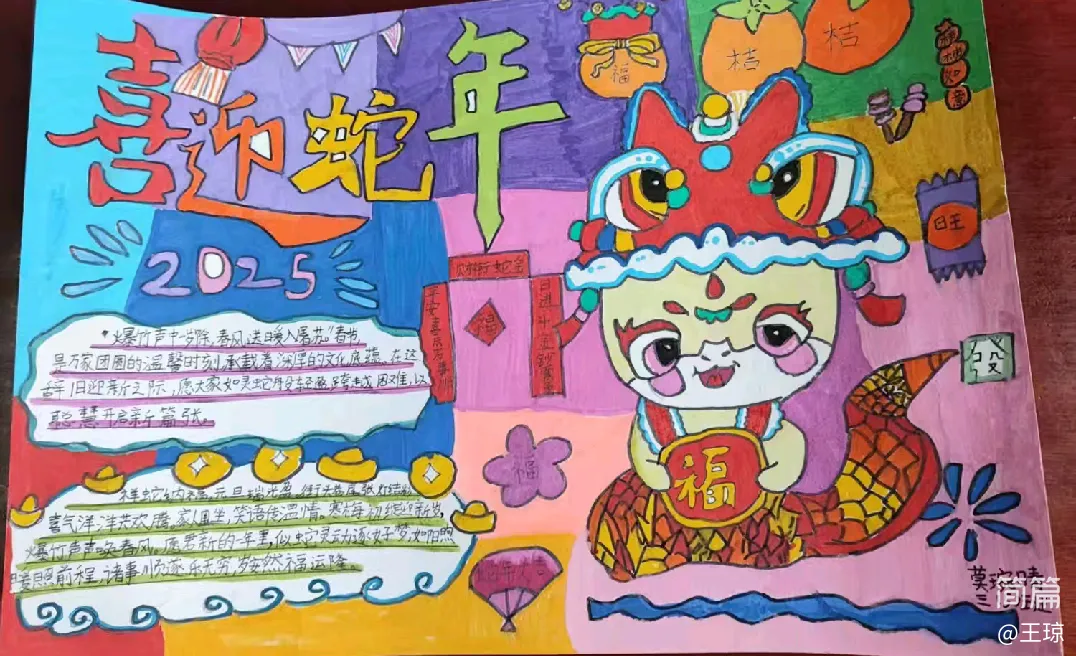 喜迎蛇年
福
桔
桔
神如意
旺
2025
财衔蛇全
日进斗
福
發
"爆竹声中一岁除,春风送暖入屠苏"春节
是万家团圆的温馨时刻,承载着深厚的文化底蕴。在这
辞旧迎新之际,愿大家如灵蛇身姿轻盈,穿越困难,以
聪慧开启新篇张。
福
福
祥蛇纳福元旦瑞光盈,街头巷尾张灯结彩
喜气洋洋共欢腾,家人围坐,笑语传温情。寒梅初绽迎新岁
爆竹声声唤春风,愿君新的一年里,似蛇灵动逐好梦,如阳
暖照前程,诸事顺遂乐无穷,岁岁安然福运隆。
蛇年大吉
莫琼晴
三
简篇
@王琼